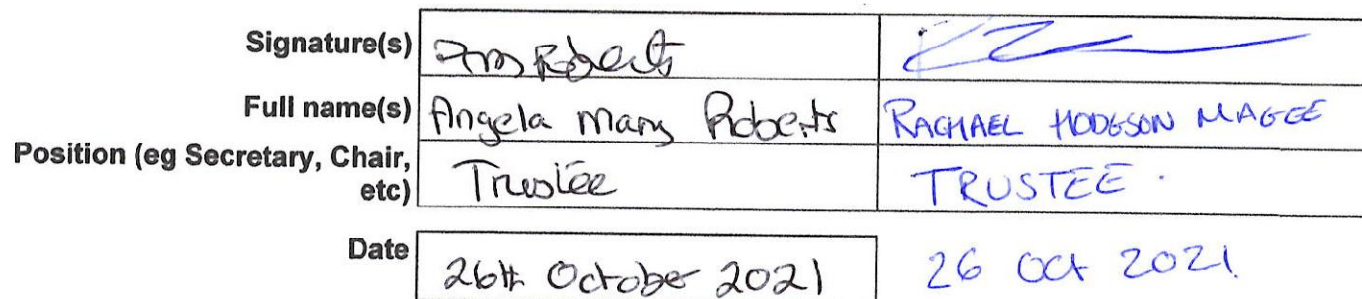 Signature(s) AM Roberts
Full name(s) Angela Mary Roberts RACHAEL HODGSON MAGEE
Position (eg Secretary, Chair,
etc) Trustee TRUSTEE .
Date 26th October 2021 26 Oct 2021